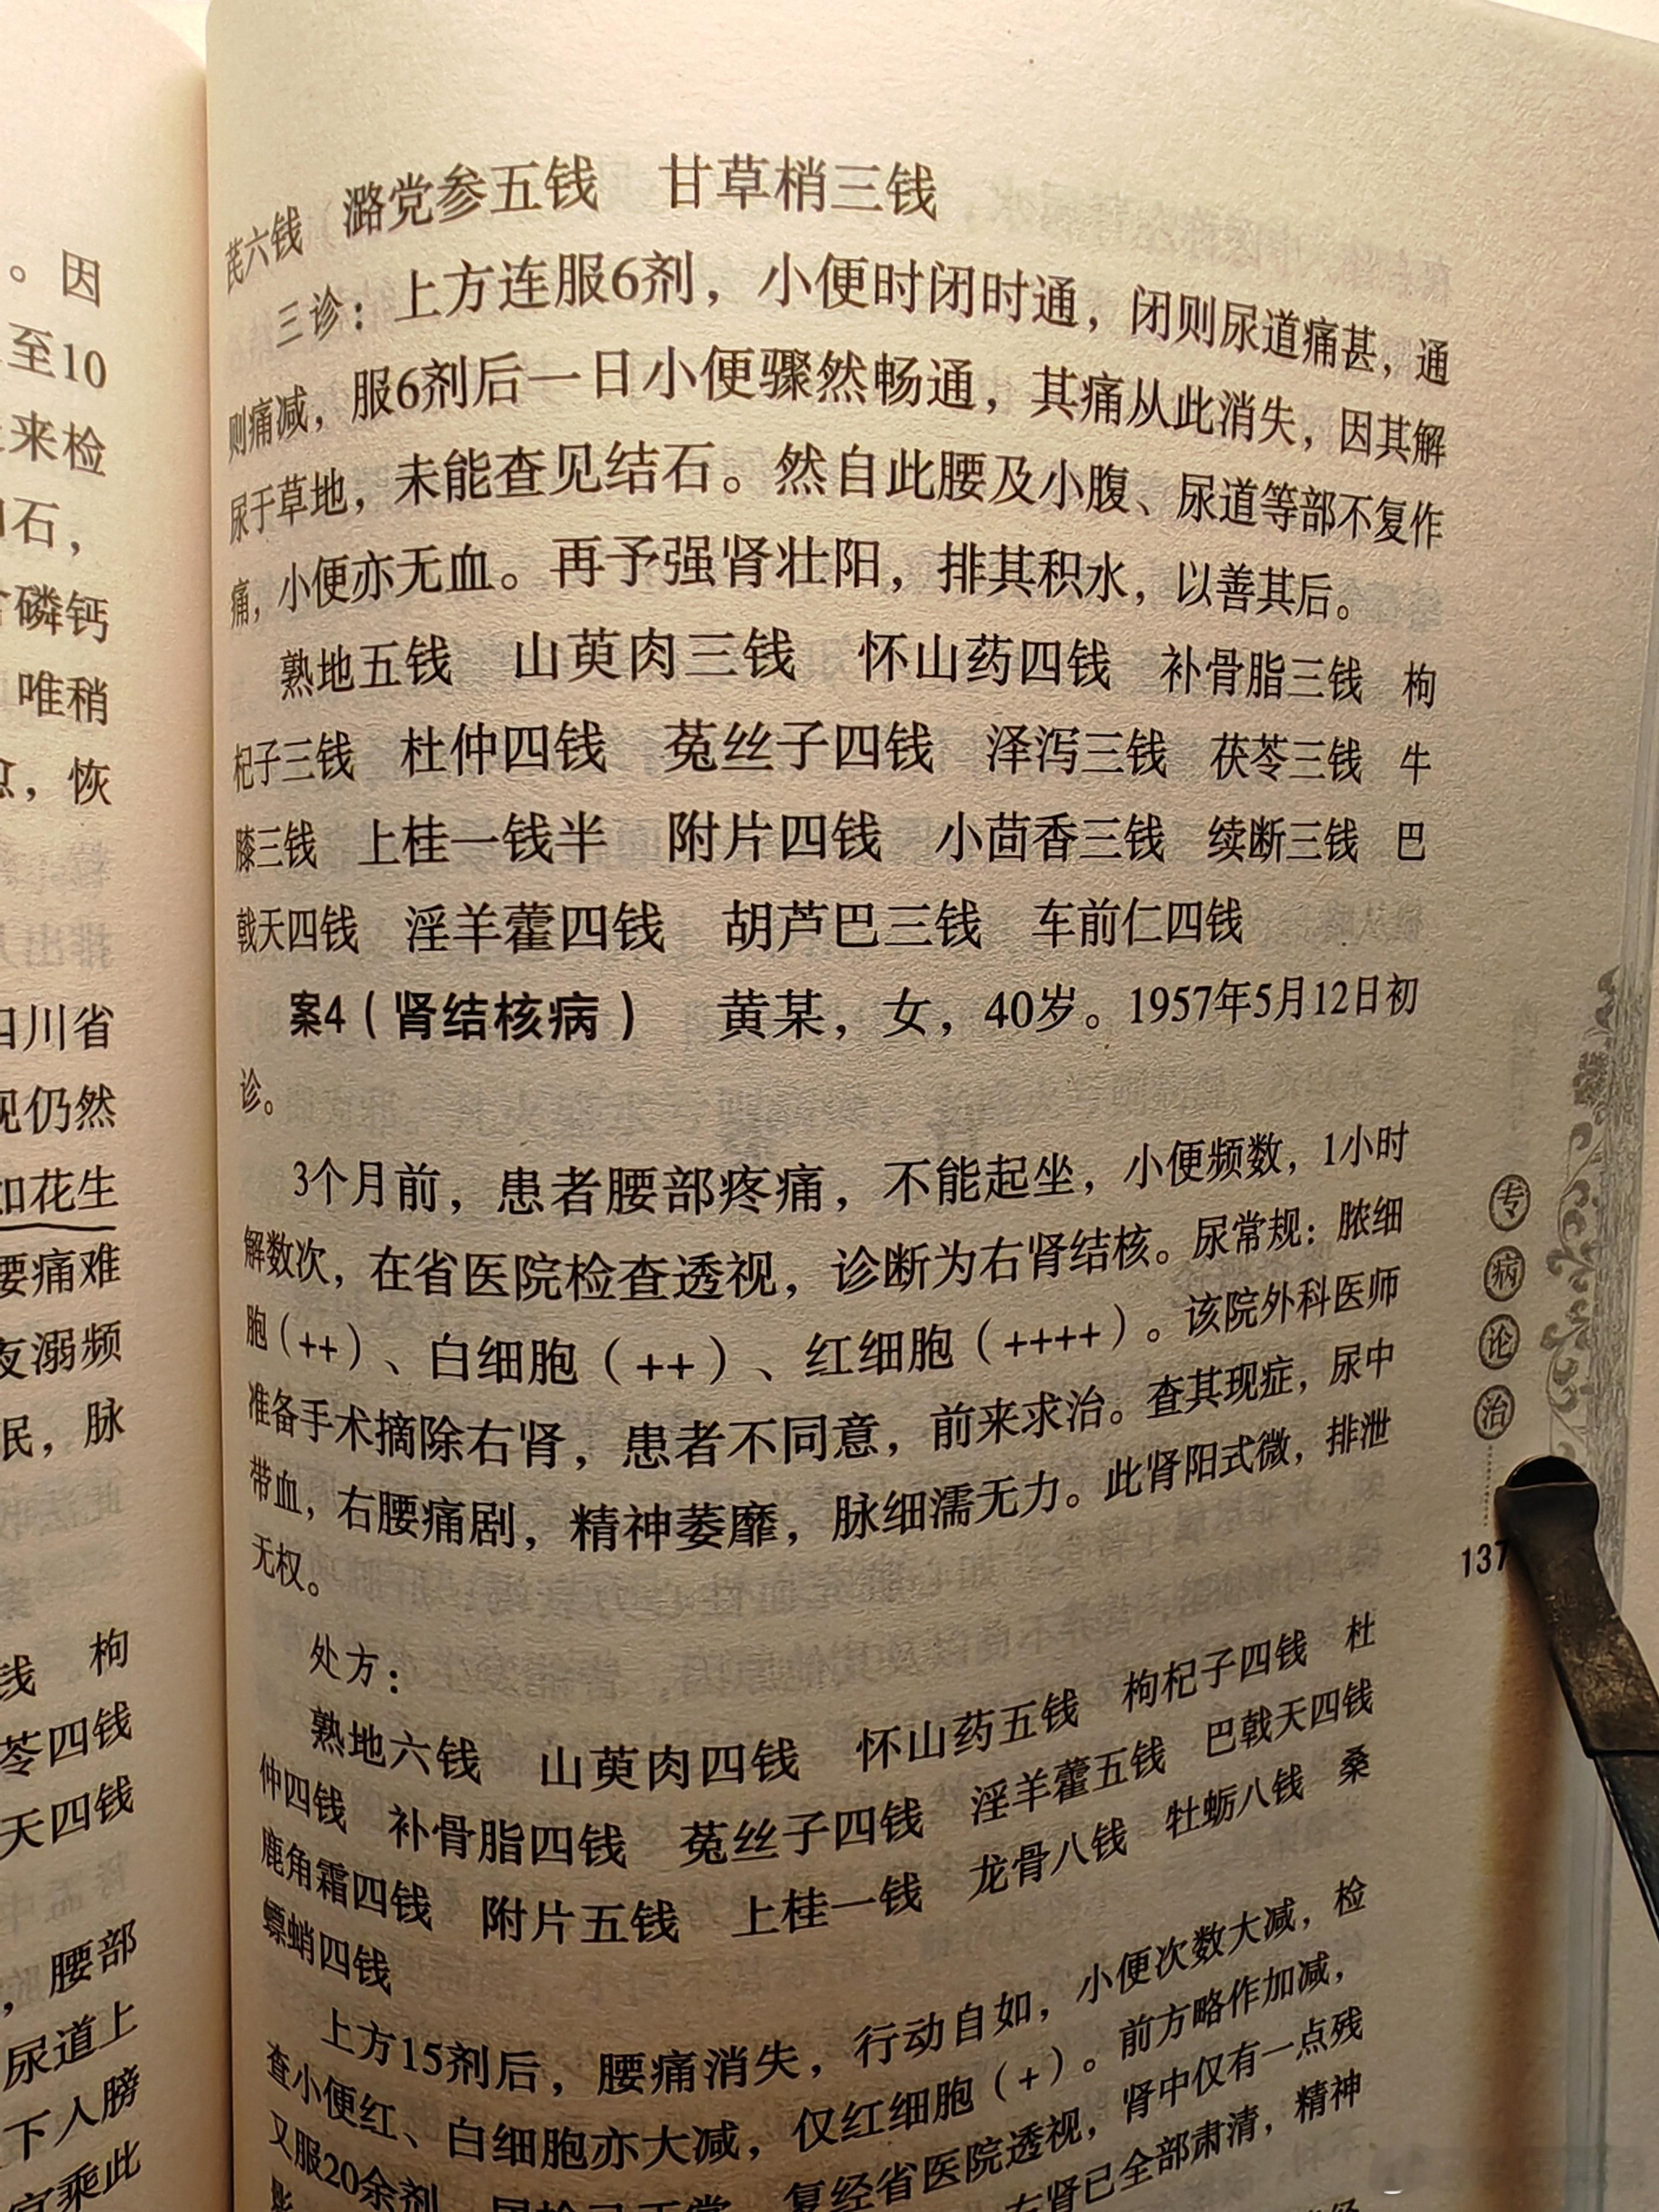 。因
至10
来检
石，
磷钙
唯稍
，恢
四川省
仍然
如花生
腰痛难
夜溺频
眠，脉
钱 枸
苓四钱
天四钱
，腰部
尿道上
下入膀
乘此
芪六钱 潞党参五钱 甘草梢三钱
三诊：上方连服6剂，小便时闭时通，闭则尿道痛甚，通
则痛减，服6剂后一日小便骤然畅通，其痛从此消失，因其解
尿于草地，未能查见结石。然自此腰及小腹、尿道等部不复作
痛，小便亦无血。再予强肾壮阳，排其积水，以善其后。
熟地五钱 山萸肉三钱 怀山药四钱 补骨脂三钱 枸
杞子三钱 杜仲四钱 菟丝子四钱 泽泻三钱 茯苓三钱 牛
膝三钱 上桂一钱半 附片四钱 小茴香三钱 续断三钱 巴
戟天四钱 淫羊藿四钱 胡芦巴三钱 车前仁四钱
案4（肾结核病） 黄某，女，40岁。1957年5月12日初
诊。
3个月前，患者腰部疼痛，不能起坐，小便频数，1小时
解数次，在省医院检查透视，诊断为右肾结核。尿常规：脓细
胞（++）、白细胞（++）、红细胞（++++）。该院外科医师
准备手术摘除右肾，患者不同意，前来求治。查其现症，尿中
带血，右腰痛剧，精神萎靡，脉细濡无力。此肾阳式微，排泄
无权。
处方：
熟地六钱 山萸肉四钱 怀山药五钱 枸杞子四钱 杜
仲四钱 补骨脂四钱 菟丝子四钱 淫羊藿五钱 巴戟天四钱
鹿角霜四钱 附片五钱 上桂一钱 龙骨八钱 牡蛎八钱 桑
螵蛸四钱
上方15剂后，腰痛消失，行动自如，小便次数大减，检
查小便红、白细胞亦大减，仅红细胞（+）。前方略作加减，
又服20余剂，尿检已正常，复经省医院透视，肾中仅有一点残
影 右肾已全部肃清，精神
专病论治
137